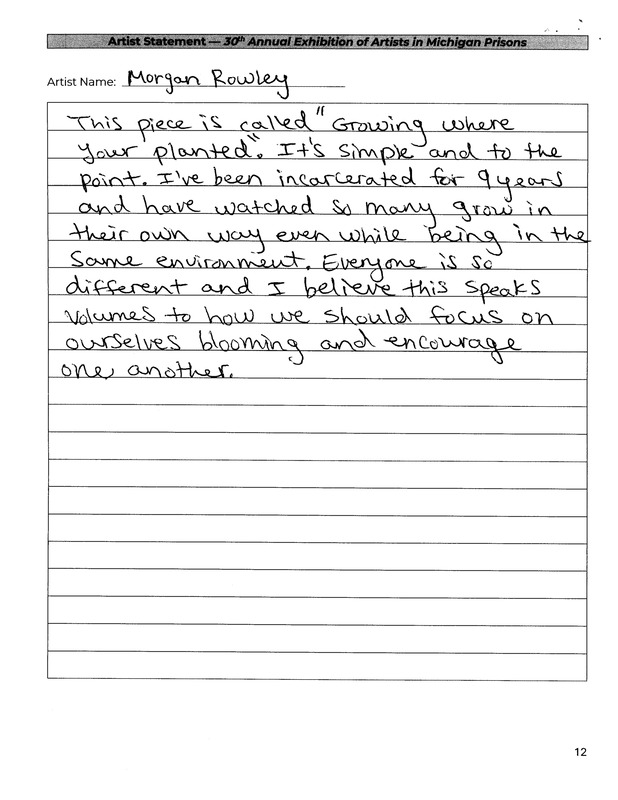 Artist Statement — 30th Annual Exhibition of Artists in Michigan Prisons
Artist Name: Morgan Rowley
This piece is called "Growing where
your planted". It's simple and to the
point. I've been incarcerated for 9 years
and have watched so many grow in
their own way even while being in the
same environment. Everyone is so
different and I believe this speaks
volumes to how we should focus on
ourselves blooming and encourage
one another.
12